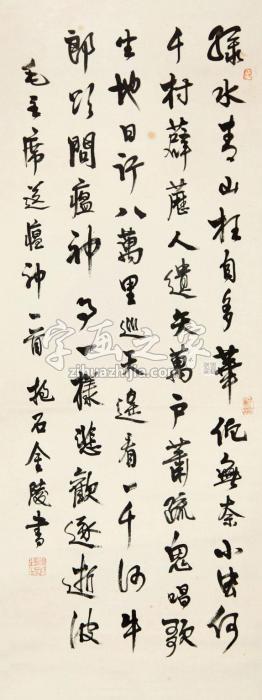 綠水青山枉自多華佗無奈小虫何
千村薜荔人遺矢萬戶蕭疏鬼唱歌
坐地日行八萬里巡天遙看一千河牛
郎欲問瘟神事一樣悲歡逐逝波
毛主席送瘟神一首 抱石金陵書
字画之家
zihuazhijia.com